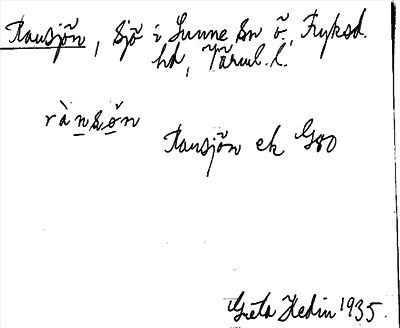 Ransjön, Sjö i Sunne sn ö., Fryksd.
hd, Värml. l.
rànsǿn
Ransjön ek G80
Greta Hedin 1935.